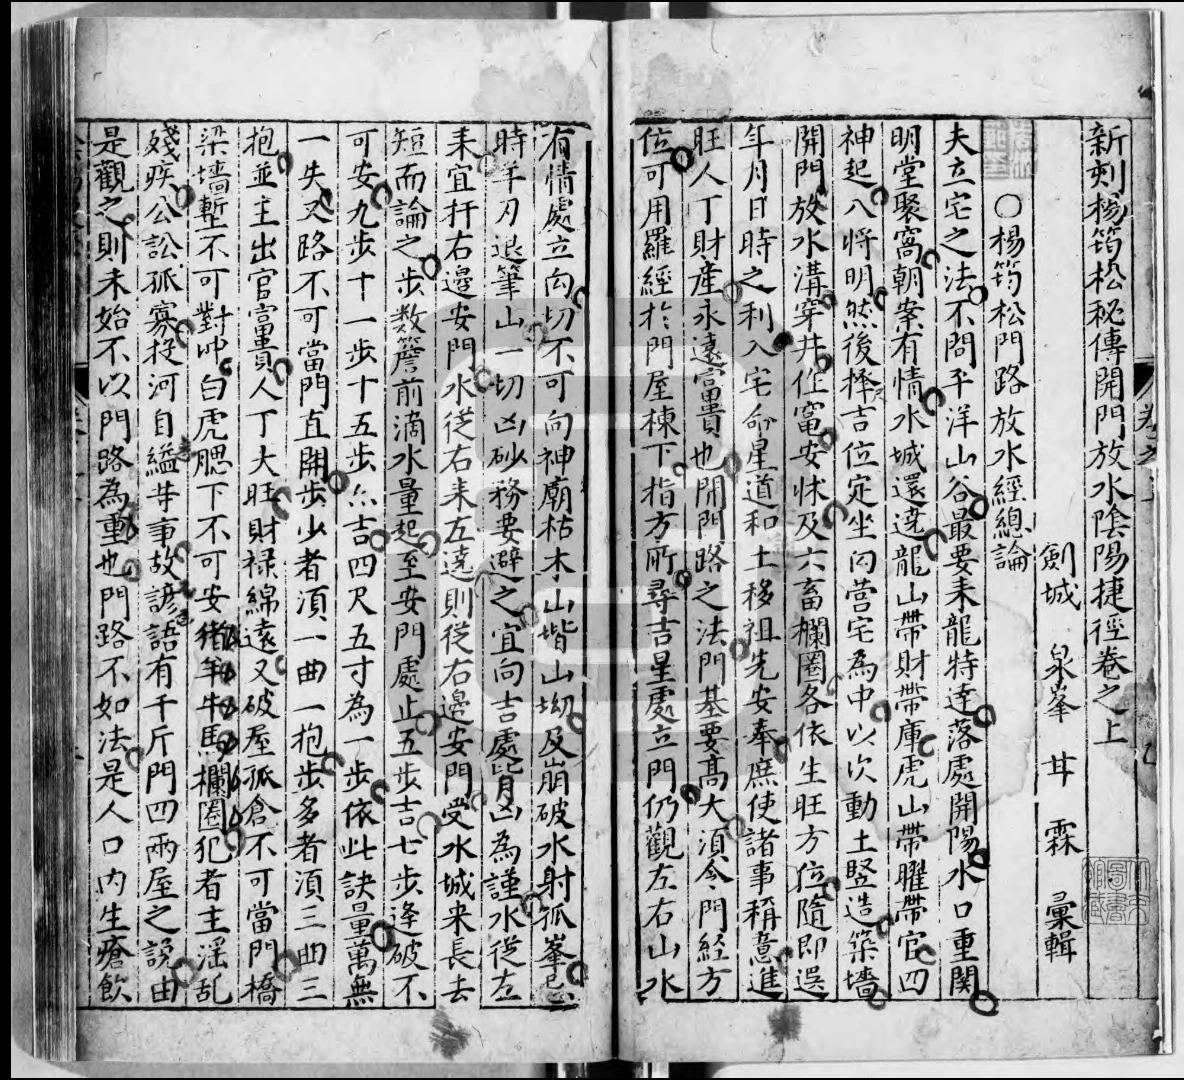 新刻楊筠松秘傳開門放水陰陽捷徑卷之上
劍城 泉峯 甘 霖 彙輯
○楊筠松門路放水經總論
夫立宅之法不問平洋山谷最要来龍特逹落處開陽水口重関
明堂聚窩朝案有情水城還遶龍山帶財帶庫虎山帶曜帶官四
神起八將明然後择吉位定坐向营宅為中以次動土竪造築墻
開門放水溝穿井作竃安床及六畜欄圈各依生旺方位隨即選
年月日時之利入宅命星道和土移祖先安奉庶使諸事稱意進
旺人丁財産永遠富貴也開門路之法門基要髙大須合門經方
位可用羅經扵門屋棟下指方所尋吉星處立門仍觀左右山水
有情處立向切不可向神廟枯木山堦山坳及崩破水射孤峯忌
時羊刃退筆山一切凶砂務要避之宜向吉處皆凶為謹水從左
耒宜扞右邊安門水從右来左遶則從右邊安門受水城来長去
短而論之步数簷前滴水量起至安門處止五步吉七步逢破不
可安九步十一步十五步六吉四尺五寸為一步依此訣量萬無
一失又路不可當門直開步少者湏一曲一抱步多者湏三曲三
抱並主出官富貴人丁大旺財禄綿遠又破屋孤倉不可當門橋
梁墻塹不可對冲白虎腮下不可安猪羊牛馬欄圈犯者主淫乱
殘疾公訟孤寡投河自縊等事故諺語有千斤門四兩屋之說由
是觀之則未始不以門路為重也門路不如法是人口内生瘡飲